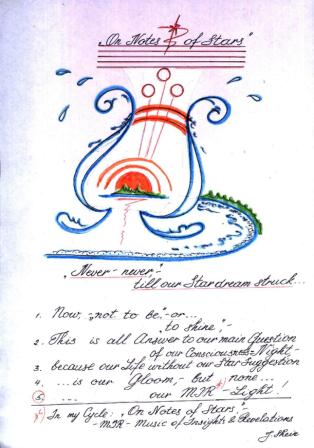 „On Notes of Stars"
„Never - never",-
till our Star dream struck...
1. Now, „not to be",-or...
„to shine",-
2. This is all Answer to our main Question
of our Consciousness-Night-
3. because our Life without our Star Suggestion
4. ...is our Gloom,- but none...
5. ... our MIR*)-Light!
*) In my Cycle: „On Notes of Stars",
-MIR- Music of Insights & Revelations